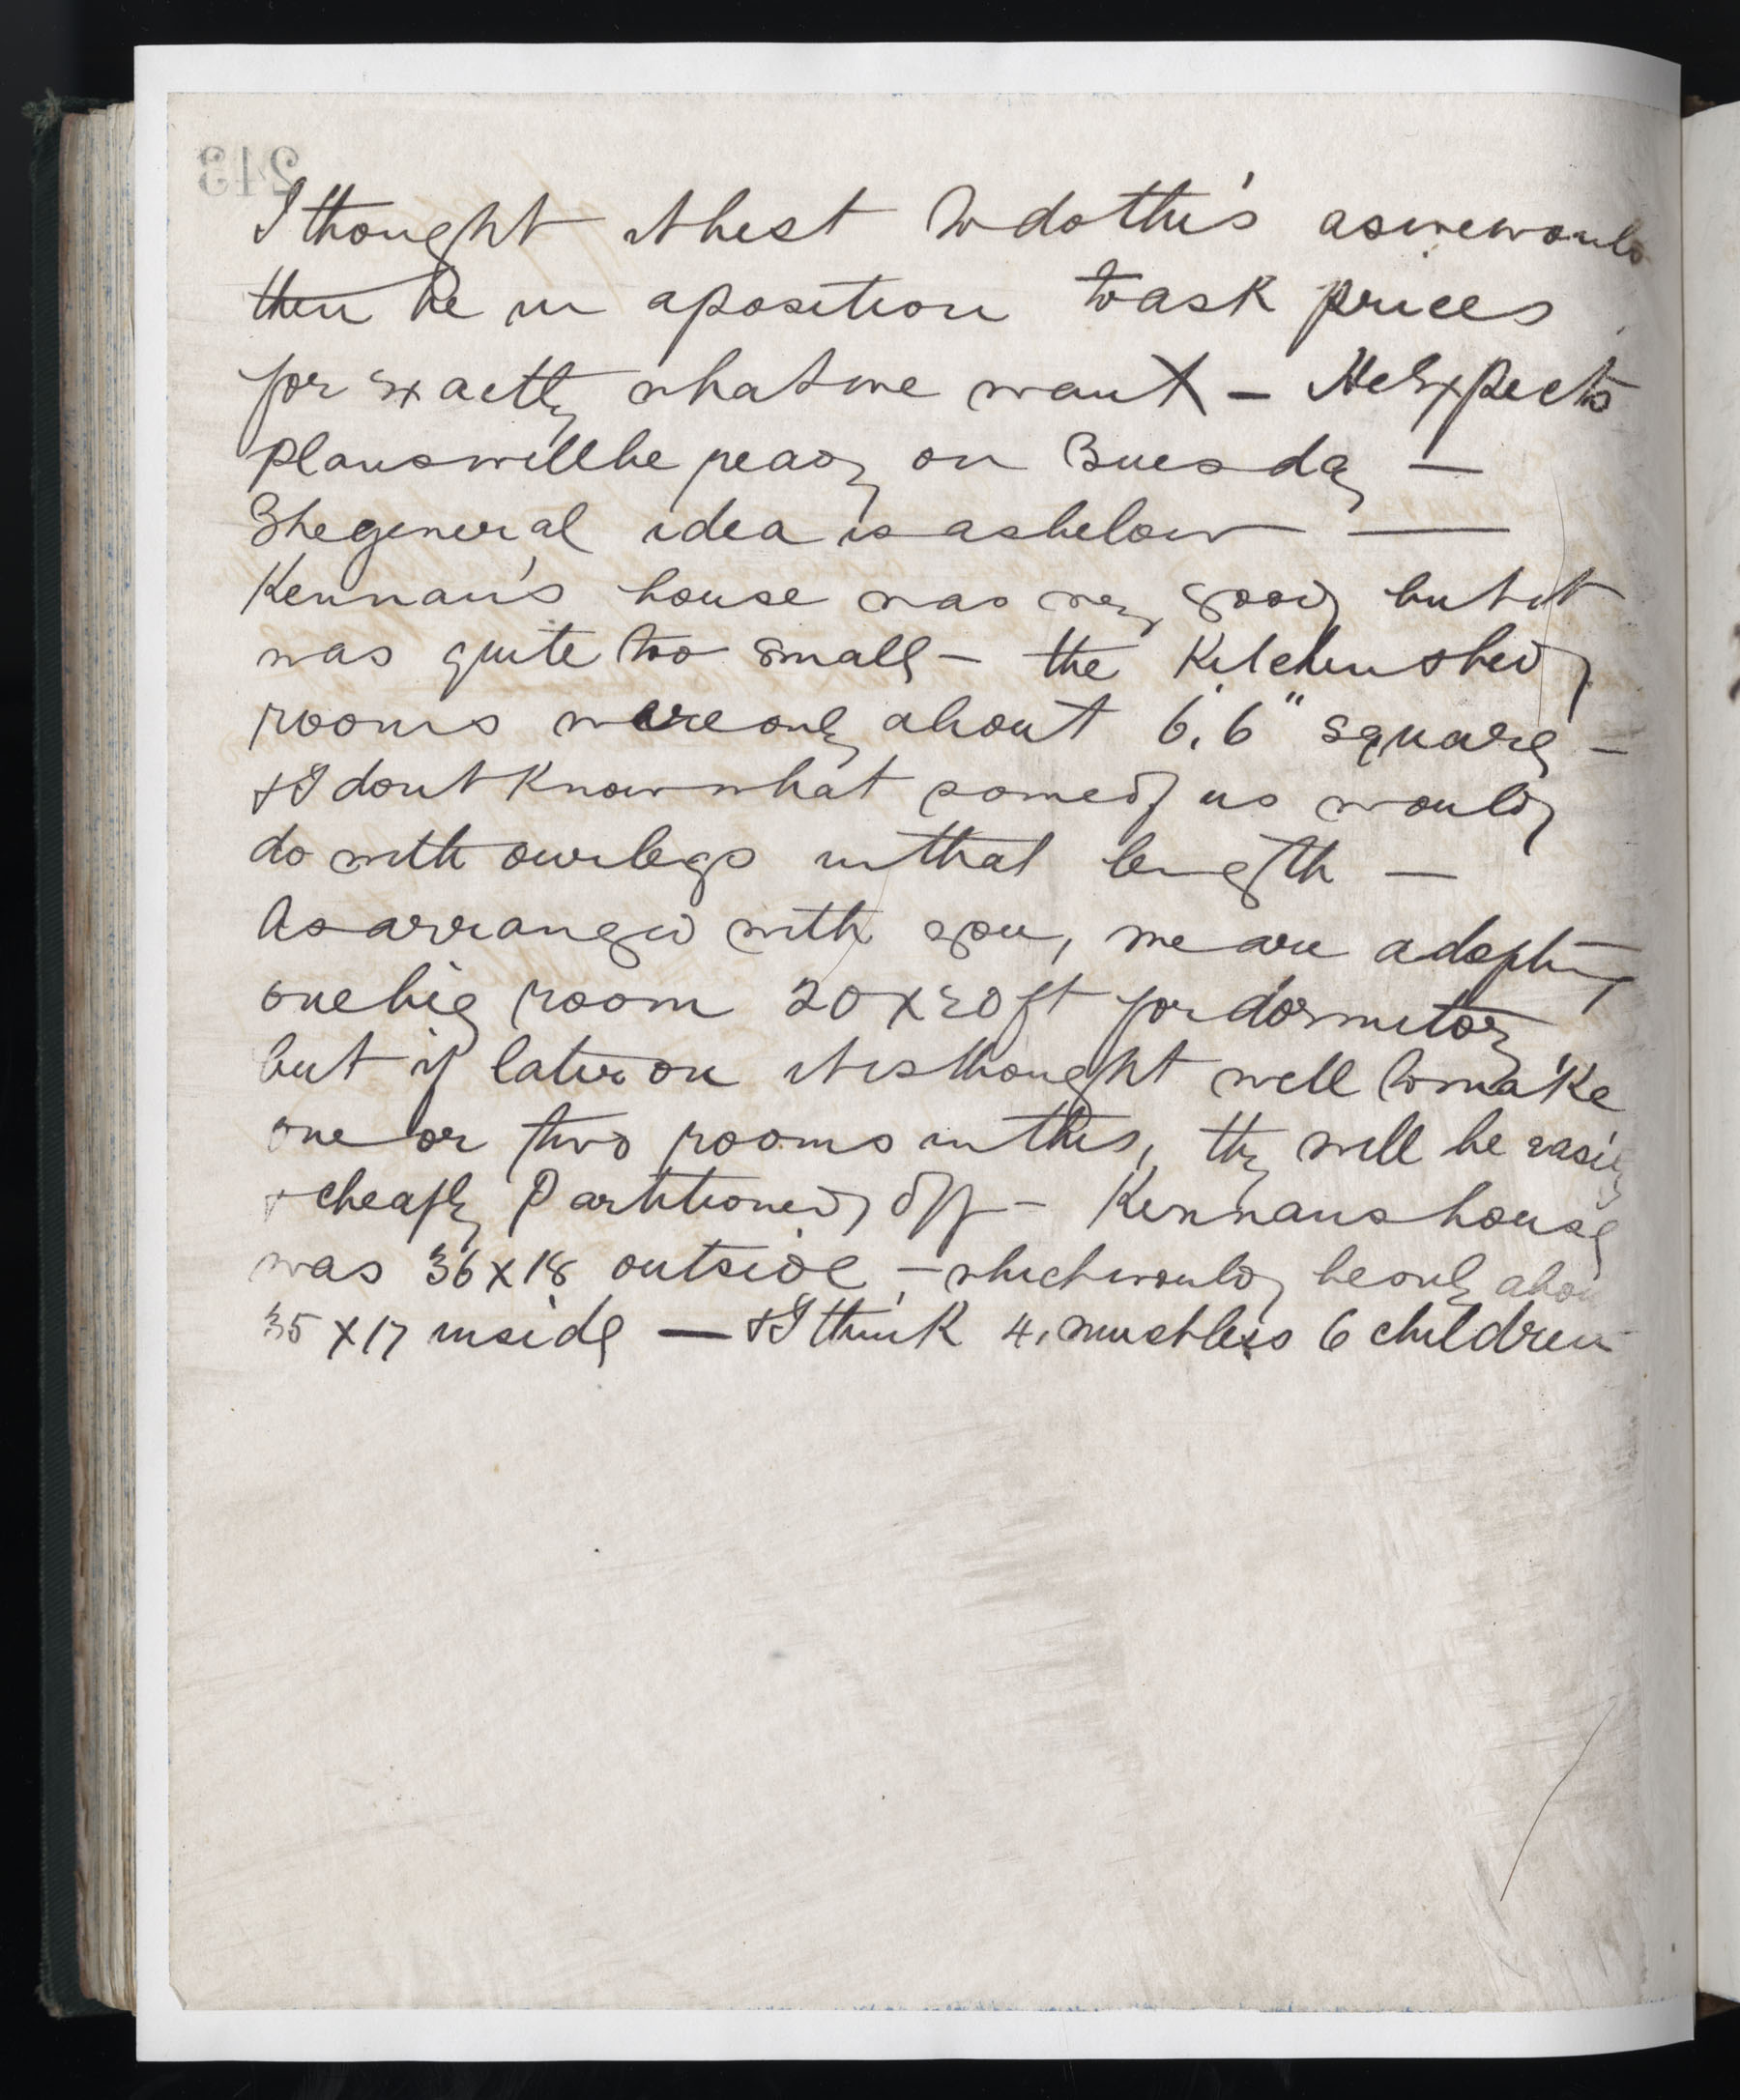 243
I thought it best to do this as we would
then be in a position to ask prices
for exactly what we want — He expects
plans will be ready on Tuesday —
The general idea is as below —
Kennan's house was very good but it
was quite too small — the Kitchen & bed
rooms were only about 6'.6" square —
& I dont know what some of us would
do with our legs in that length —
As arranged with you, we are adopting
one big room 20 x 20 ft for dormitory
but if later on it is thought well to make
one or two rooms in this, they will be easily
& cheaply partitioned off — Kennans house
was 36 x 18 outside, — which would be only about
35 x 17 inside — & I think 4, much less 6 children